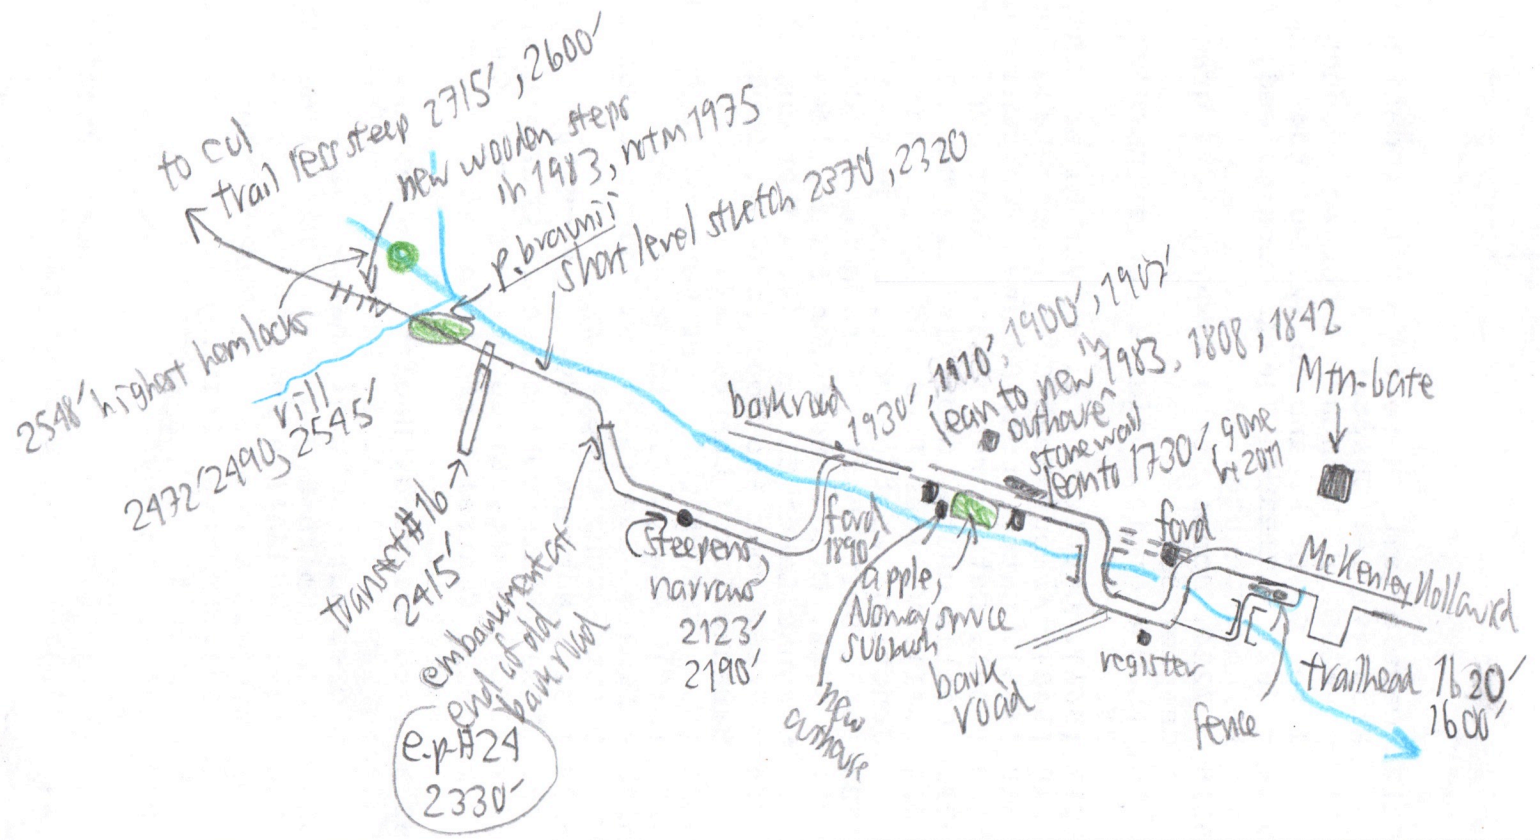 to col
trail less steep 2715', 2600'
new wooden steps
in 1983, not in 1975
P. braunii
short level stretch 2370', 2320
2548' highest hemlocks
rill
2472' 2490, 2545'
transect #16
2415'
embankment at
end of old
bark road
e.p. #24
2330'
steepens,
narrows
2123'
2190'
bark road
1930', 1910', 1900', 1907'
lean to new in 1983, 1808, 1842
outhouse
stone wall
lean to 1730' gone
by 2011
Mtn-Gate
ford
1890'
apple,
Norway spruce
new
outhouse
ford
McKenley Hollow rd
bark
road
register
fence
trailhead 1620'
1600'